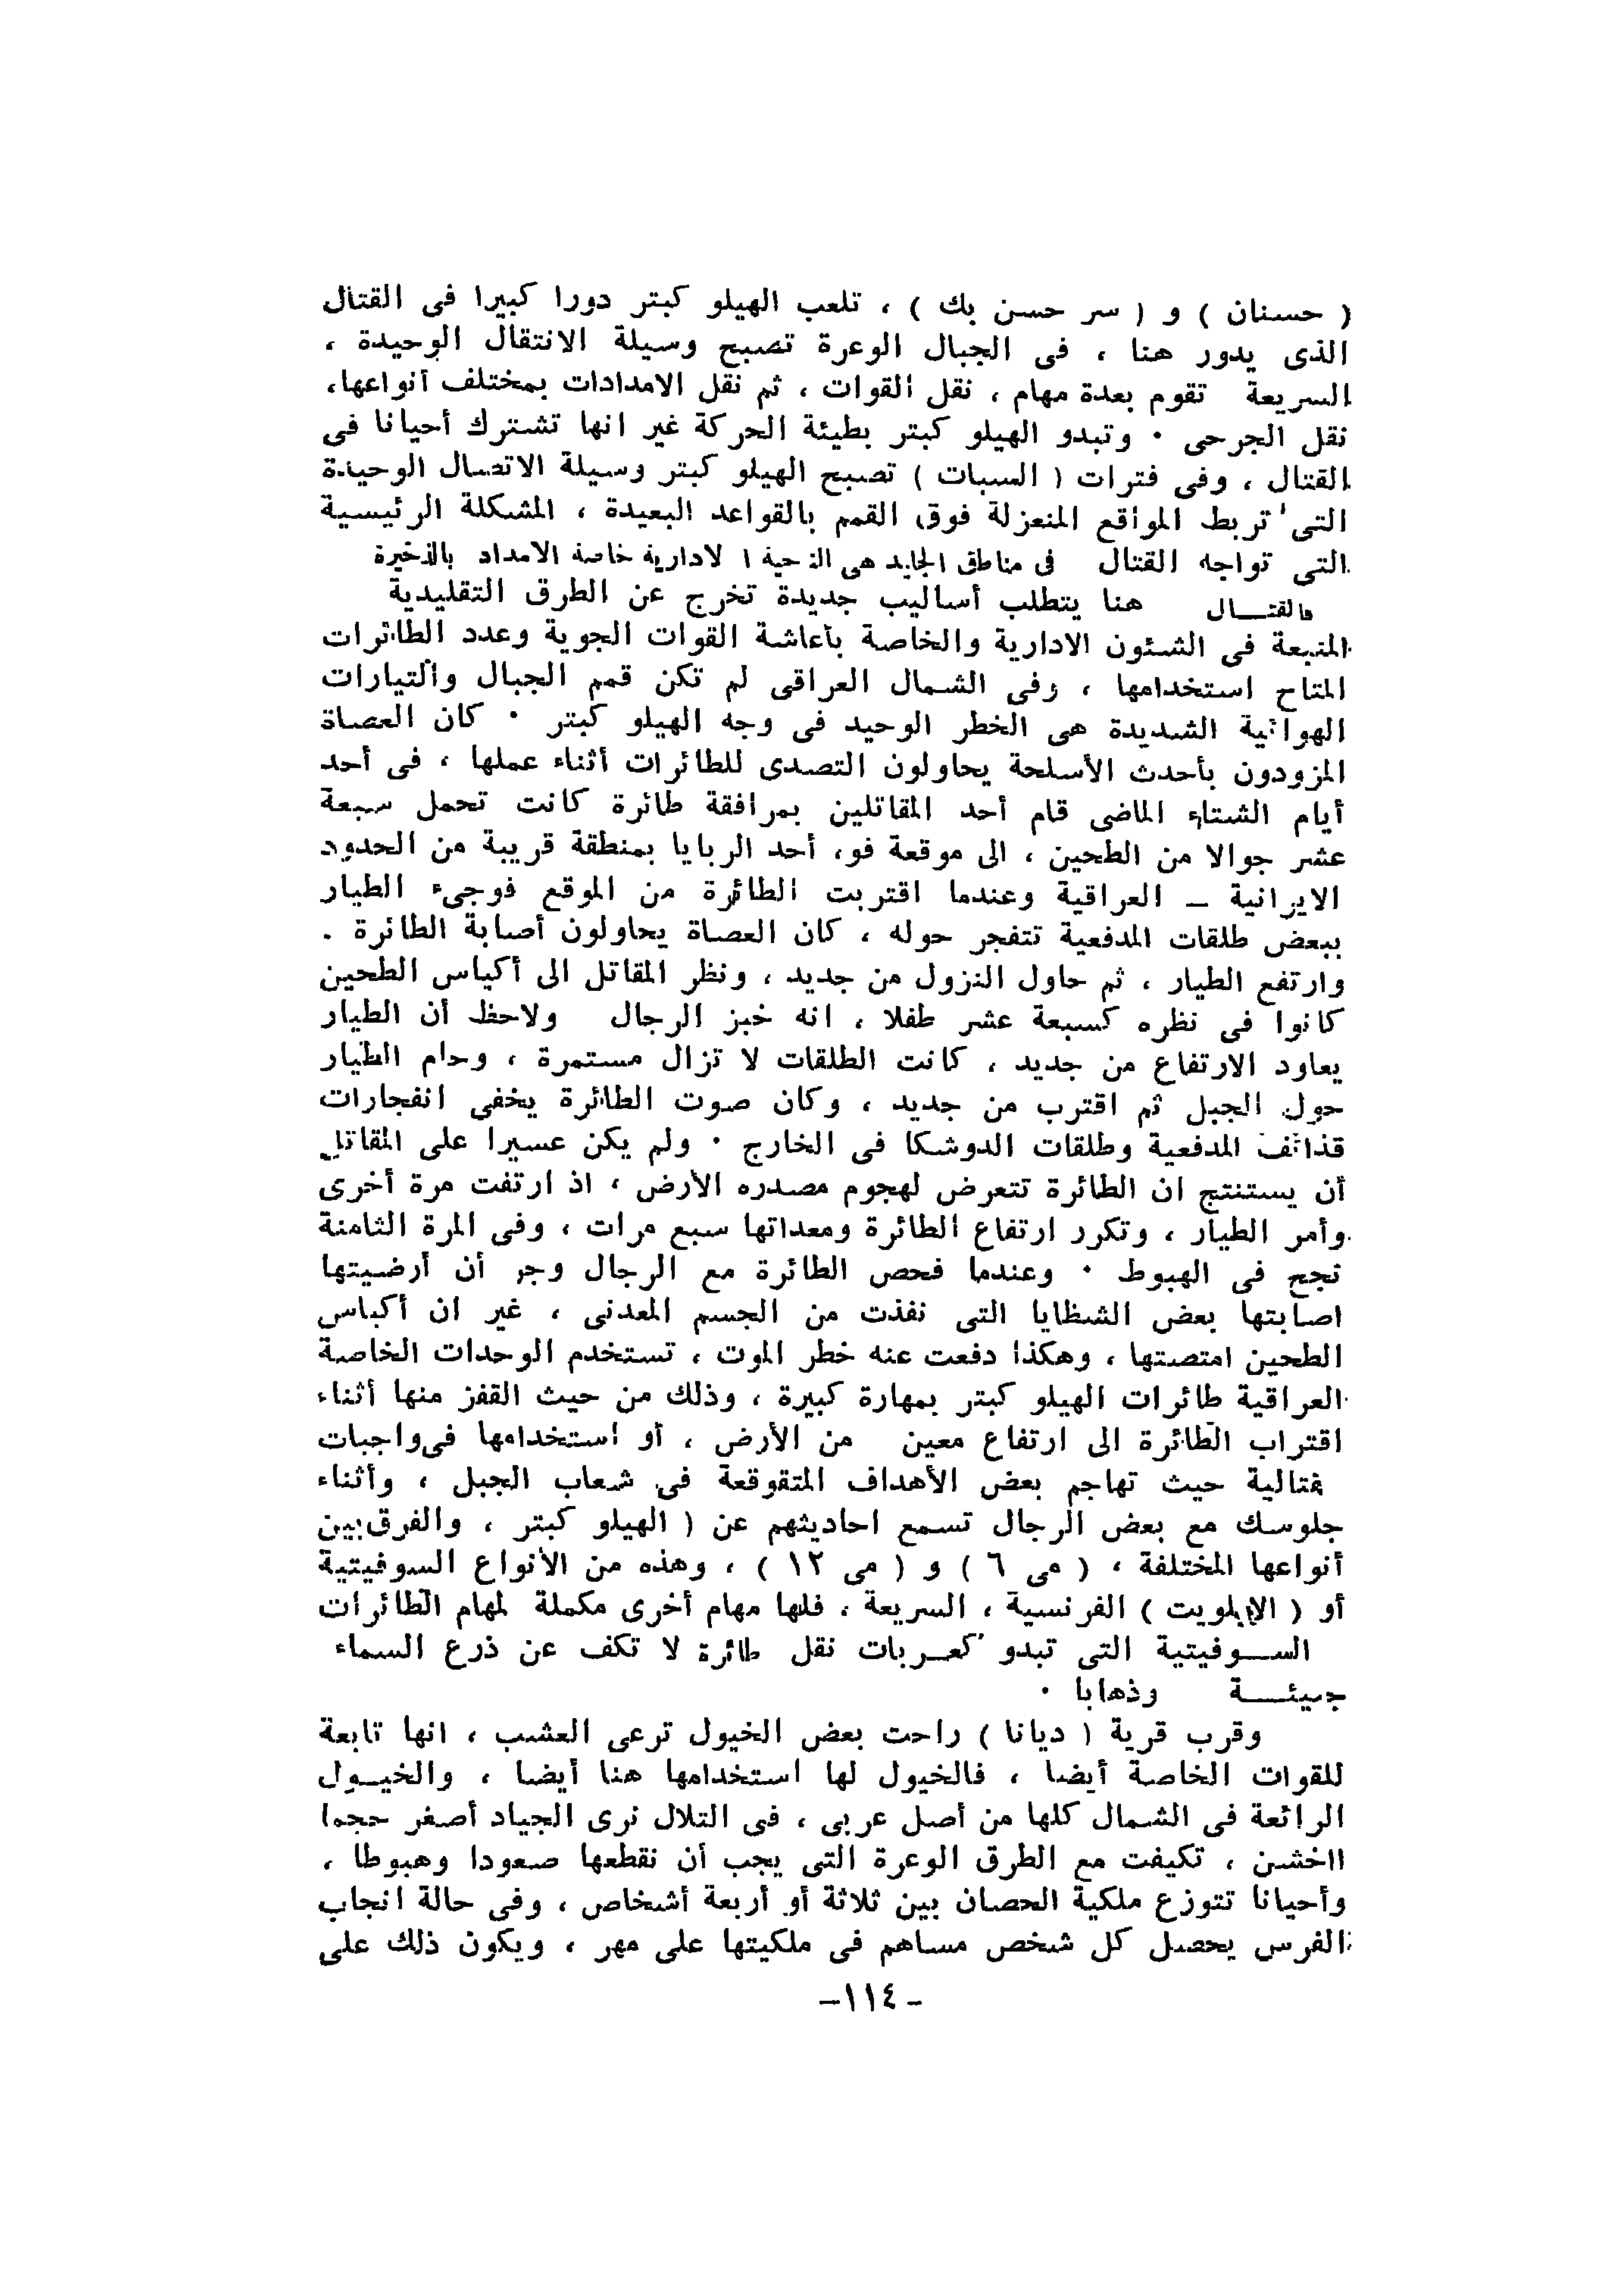 ( حسنان ) و ( سر حسن بك ) ، تلعب الهيلو كبتر دورا كبيرا فى القتال
الذى يدور هنا ، فى الجبال الوعرة تصبح وسيلة الانتقال الوحيدة ،
السريعة تقوم بعدة مهام ، نقل القوات ، ثم نقل الامدادات بمختلف أنواعها،
نقل الجرحى · وتبدو الهيلو كبتر بطيئة الحركة غير انها تشترك أحيانا فى
القتال ، وفى فترات ( السبات ) تصبح الهيلو كبتر وسيلة الاتصال الوحيدة
التى تربط المواقع المنعزلة فوق القمم بالقواعد البعيدة ، المشكلة الرئيسية
التى تواجه القتال فى مناطق الجليد هى الناحية الادارية خاصة الامداد بالذخيرة
فالقتـــال هنا يتطلب أساليب جديدة تخرج عن الطرق التقليدية
المتبعة فى الشئون الادارية والخاصة بأعاشة القوات الجوية وعدد الطائرات
المتاح استخدامها ، وفى الشمال العراقى لم تكن قمم الجبال والتيارات
الهوائية الشديدة هى الخطر الوحيد فى وجه الهيلو كبتر · كان العصاة
المزودون بأحدث الأسلحة يحاولون التصدى للطائرات أثناء عملها ، فى أحد
أيام الشتاء الماضى قام أحد المقاتلين بمرافقة طائرة كانت تحمل سبعة
عشر جوالا من الطحين ، الى موقعة فو، أحد الربايا بمنطقة قريبة من الحدود
الايرانية – العراقية وعندما اقتربت الطائرة من الموقع فوجىء الطيار
ببعض طلقات المدفعية تتفجر حوله ، كان العصاة يحاولون أصابة الطائرة .
وارتفع الطيار ، ثم حاول النزول من جديد ، ونظر المقاتل الى أكياس الطحين
كانوا فى نظره كسبعة عشر طفلا ، انه خبز الرجال ولاحظ أن الطيار
يعاود الارتفاع من جديد ، كانت الطلقات لا تزال مستمرة ، وحام الطيار
حول الجبل ثم اقترب من جديد ، وكان صوت الطائرة يخفى انفجارات
قذائف المدفعية وطلقات الدوشكا فى الخارج · ولم يكن عسيرا على المقاتل
أن يستنتج ان الطائرة تتعرض لهجوم مصدره الأرض ، اذ ارتفت مرة أخرى
وأمر الطيار ، وتكرر ارتفاع الطائرة ومعداتها سبع مرات ، وفى المرة الثامنة
نجح فى الهبوط · وعندما فحص الطائرة مع الرجال وجر أن أرضيتها
اصابتها بعض الشظايا التى نفذت من الجسم المعدنى ، غير ان أكياس
الطحين امتصتها ، وهكذا دفعت عنه خطر الموت ، تستخدم الوحدات الخاصة
العراقية طائرات الهيلو كبتر بمهارة كبيرة ، وذلك من حيث القفز منها أثناء
اقتراب الطائرة الى ارتفاع معين من الأرض ، أو استخدامها فى واجبات
قتالية حيث تهاجم بعض الأهداف المتقوقعة فى شعاب الجبل ، وأثناء
جلوسك مع بعض الرجال تسمع احاديثهم عن ( الهيلو كبتر ، والفرق بين
أنواعها المختلفة ، ( مى ٦ ) و ( مى ١٢ ) ، وهذه من الأنواع السوفيتية
أو ( الايلويت ) الفرنسية ، السريعة ، فلها مهام أخرى مكملة لمهام الطائرات
الســـوفيتية التى تبدو كعــربات نقل طائرة لا تكف عن ذرع السماء
جيئـــــة وذهابا ·
وقرب قرية ( ديانا ) راحت بعض الخيول ترعى العشب ، انها تابعة
للقوات الخاصة أيضا ، فالخيول لها استخدامها هنا أيضا ، والخيــول
الرائعة فى الشمال كلها من أصل عربى ، فى التلال نرى الجياد أصغر حجما
ااخشن ، تكيفت مع الطرق الوعرة التى يجب أن نقطعها صعودا وهبوطا ،
وأحيانا تتوزع ملكية الحصان بين ثلاثة أو أربعة أشخاص ، وفى حالة انجاب
الفرس يحصل كل شخص مساهم فى ملكيتها على مهر ، ويكون ذلك على
–١١٤ –